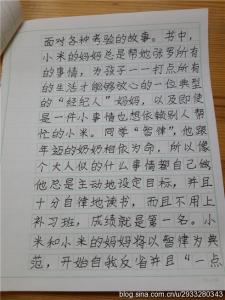 面对各种考验的故事。书中，
小米的妈妈总是帮她张罗所有
的事情，为孩子一一打点所有
的生活才能够放心的一位典型
的“经纪人”妈妈，以及即使
是一件小事情也想依赖别人帮
忙的小米。同学“智律”，他跟
年迈的奶奶相依为命，所以像
个大人似的什么事情都自己做
他总是主动地设定目标，并且
十分自律地读书，而且不用上
补习班，成绩就是第一名。小
米和小米的妈妈将以智律为典
范，开始自我反省并且“一点
blog.sina.com.cn/u/2933280343